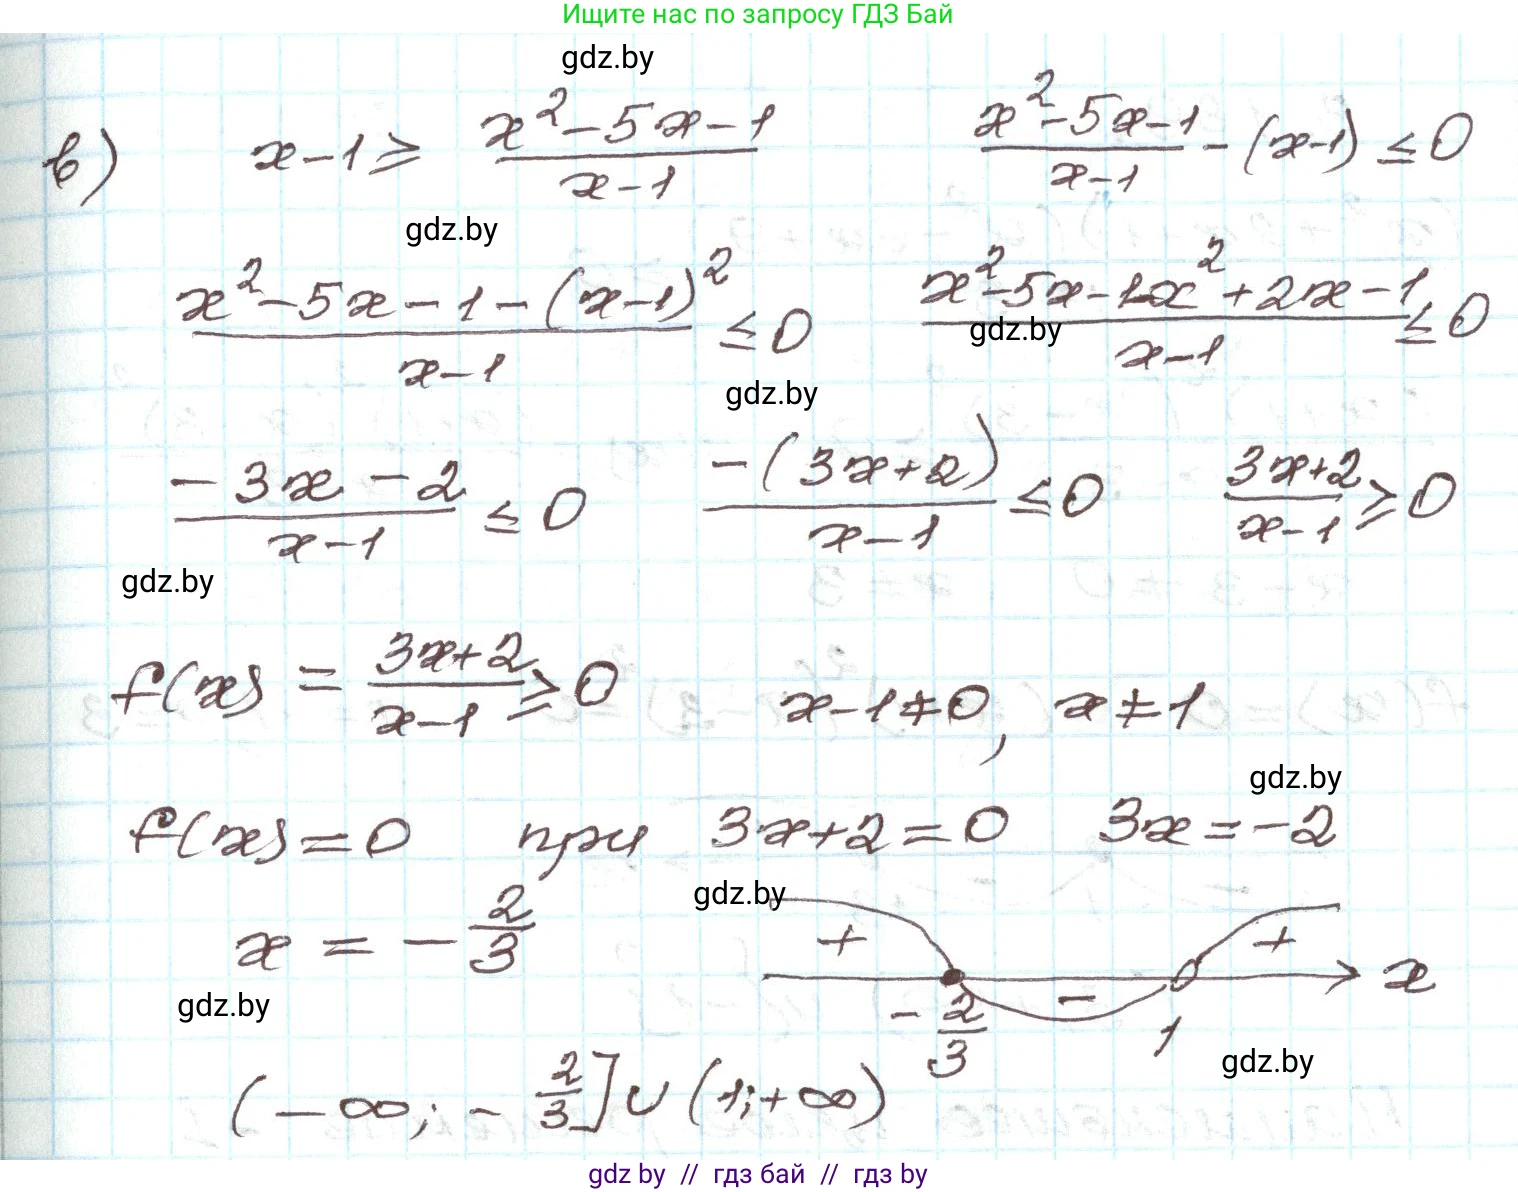 Ищите нас по запросу ГДЗ Бай
gdz.by
в) x-1 ≥ (x²-5x-1)/(x-1)   (x²-5x-1)/(x-1) - (x-1) ≤ 0
gdz.by
(x²-5x-1-(x-1)²)/(x-1) ≤ 0   (x²-5x-1-x²+2x-1)/(x-1) ≤ 0
gdz.by
gdz.by
(-3x-2)/(x-1) ≤ 0   (-(3x+2))/(x-1) ≤ 0   (3x+2)/(x-1) ≥ 0
gdz.by
f(x) = (3x+2)/(x-1) ≥ 0   x-1≠0, x≠1
gdz.by
f(x)=0 при 3x+2=0   3x=-2
gdz.by
x = -2/3   + - + x
gdz.by
-2/3   1
gdz.by
(-∞; -2/3] ∪ (1; +∞)
gdz by // гдз бай // гдз by